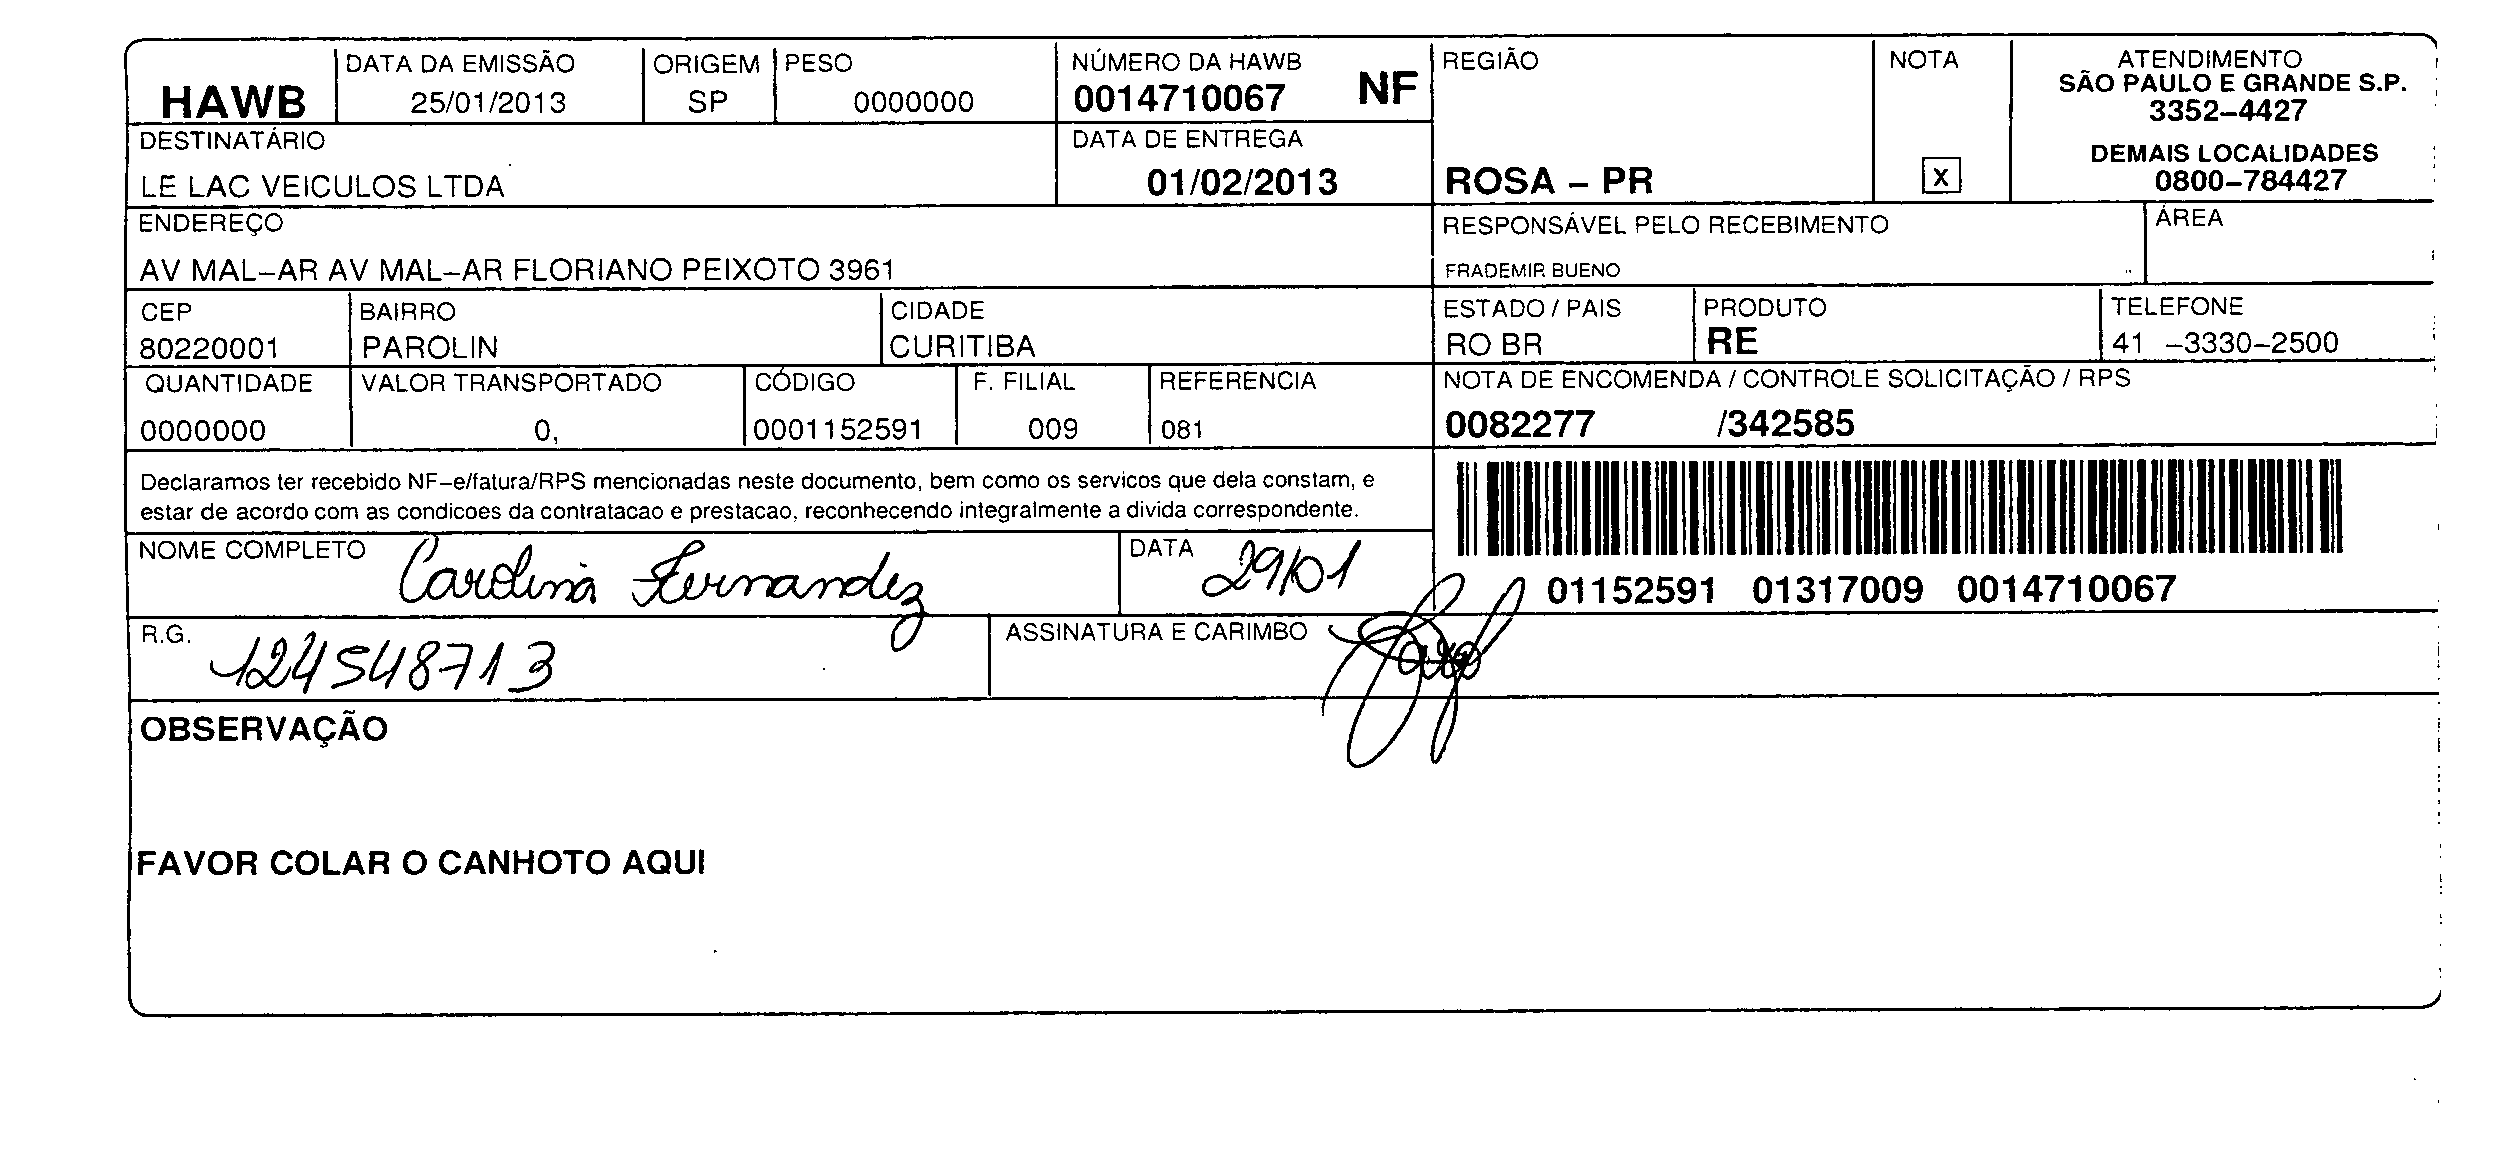 HAWB
DATA DA EMISSÃO
25/01/2013
ORIGEM
SP
PESO
0000000
NÚMERO DA HAWB
0014710067 NF
REGIÃO
ROSA – PR
NOTA
X
ATENDIMENTO
SÃO PAULO E GRANDE S.P.
3352–4427
DEMAIS LOCALIDADES
0800–784427
DESTINATÁRIO
LE LAC VEICULOS LTDA
DATA DE ENTREGA
01/02/2013
ENDEREÇO
AV MAL–AR AV MAL–AR FLORIANO PEIXOTO 3961
RESPONSÁVEL PELO RECEBIMENTO
FRADEMIR BUENO
ÁREA
CEP
80220001
BAIRRO
PAROLIN
CIDADE
CURITIBA
ESTADO / PAIS
RO BR
PRODUTO
RE
TELEFONE
41 –3330–2500
QUANTIDADE
0000000
VALOR TRANSPORTADO
0,
CÓDIGO
0001152591
F. FILIAL
009
REFERENCIA
081
NOTA DE ENCOMENDA / CONTROLE SOLICITAÇÃO / RPS
0082277 /342585
Declaramos ter recebido NF–e/fatura/RPS mencionadas neste documento, bem como os servicos que dela constam, e
estar de acordo com as condicoes da contratacao e prestacao, reconhecendo integralmente a divida correspondente.
NOME COMPLETO Carolina Fernandez
DATA 29/01
01152591 01317009 0014710067
R.G. 124548713
ASSINATURA E CARIMBO
OBSERVAÇÃO
FAVOR COLAR O CANHOTO AQUI